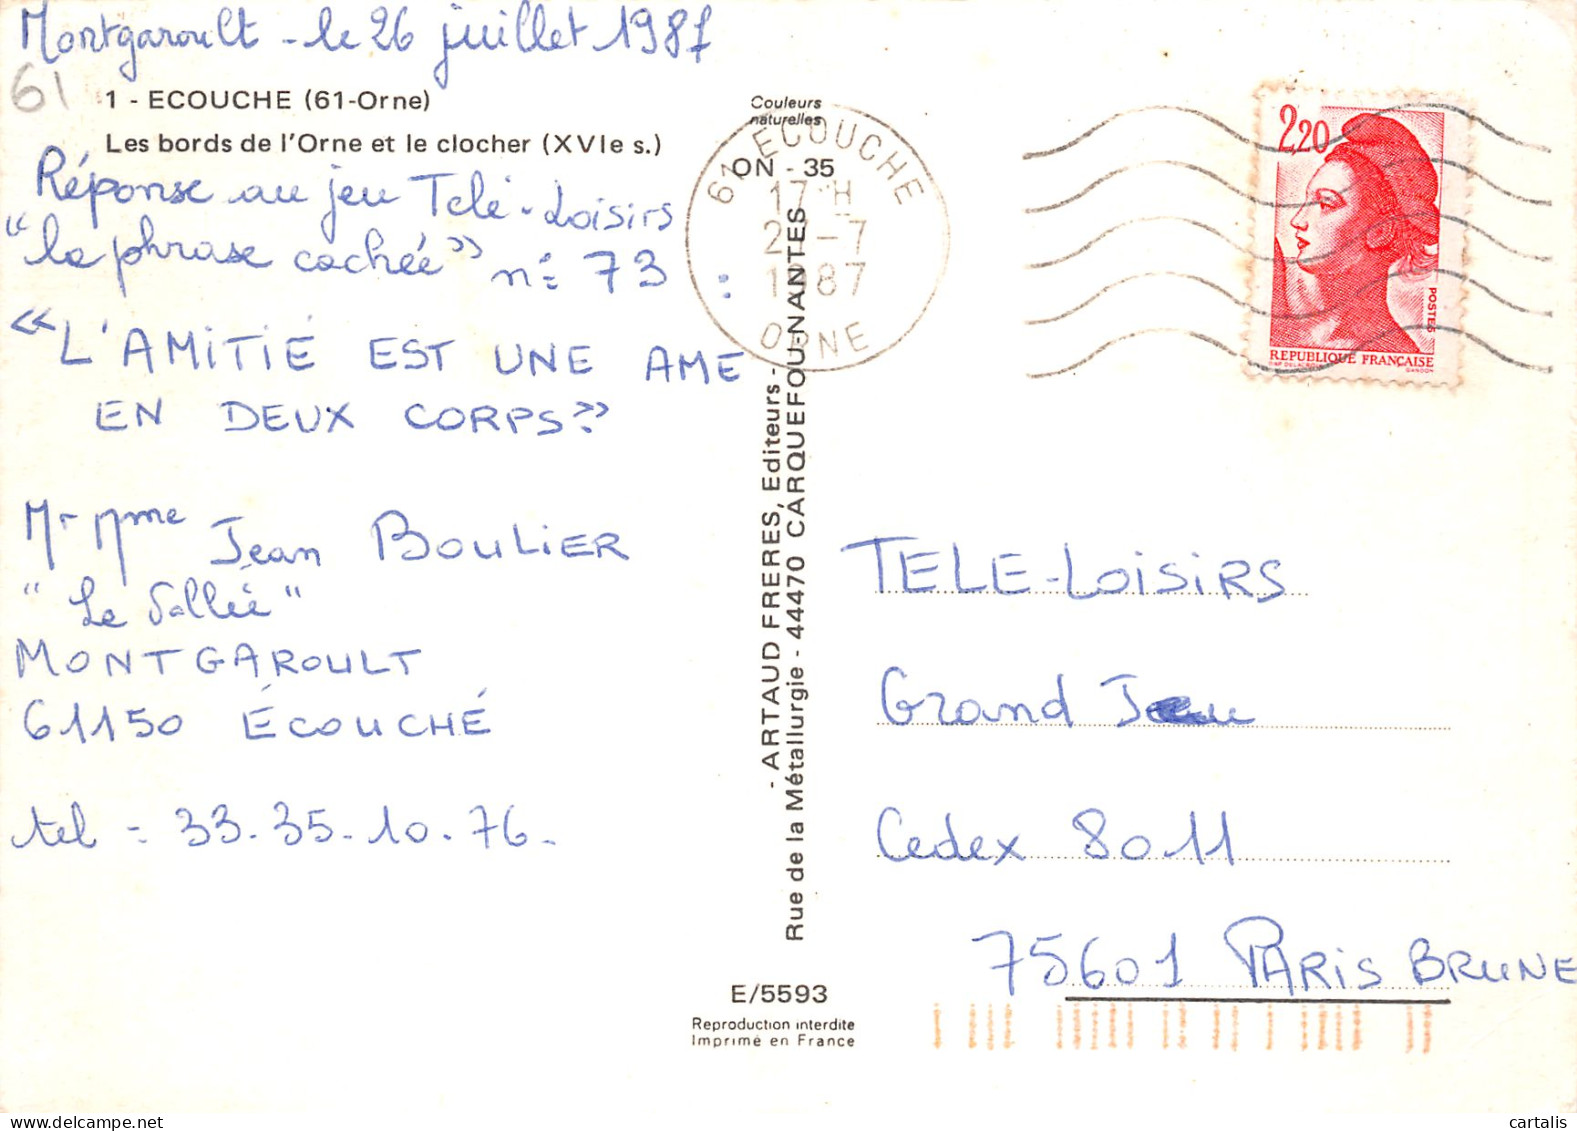 Montgaroult - le 26 juillet 1987
61
1 - ECOUCHE (61-Orne)
Les bords de l'Orne et le clocher (XVIe s.)
Réponse au jeu Télé-Loisirs
"la phrase cachée" n° 73 :
« L'AMITIÉ EST UNE AME
EN DEUX CORPS »
Mr Mme Jean BOULIER
"La Vallée"
MONTGAROULT
61150 ÉCOUCHÉ
tel = 33.35.10.76.
Couleurs
naturelles
ON - 35
61 ECOUCHE
17 H
27-7
1987
ORNE
- ARTAUD FRERES, Editeurs -
Rue de la Métallurgie - 44470 CARQUEFOU-NANTES
E/5593
Reproduction interdite
Imprimé en France
2,20
POSTES
REPUBLIQUE FRANÇAISE
GANDON
TELE-LOISIRS
Grand Jeu
Cedex 8011
75601 PARIS BRUNE
cartalis